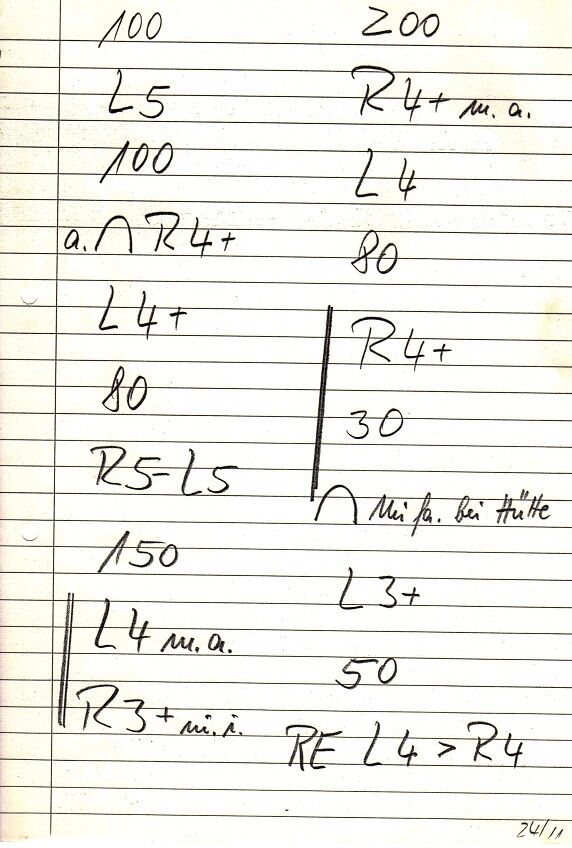 100
L5
100
a. ∩ R4+
L4+
80
R5-L5
150
L4 m.a.
R3+ m.i.
200
R4+ m.a.
L4
80
R4+
30
∩ Mi fa. bei Hütte
L3+
50
RE L4 > R4
24/11